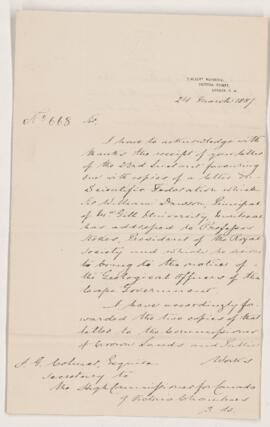 24 March 1887
No 668 Sir,
I have to acknowledge with
thanks the receipt of your letter
of the 23rd Instant favouring
me with copies of a letter on
Scientific Federation which
Sir William Dawson, Principal
of McGill University, Montreal
has addressed to Professor
Stokes, President of the Royal
Society and which he desires
to bring to the notice of
the Geological Officers of the
Cape Government.
I have accordingly for-
warded the two copies of that
letter to the Commissioner
of Crown Lands and Public
Works
J. G. Colmer, Esquire
Secretary to
the High Commissioner for Canada
9 Victoria Chambers
S.W.